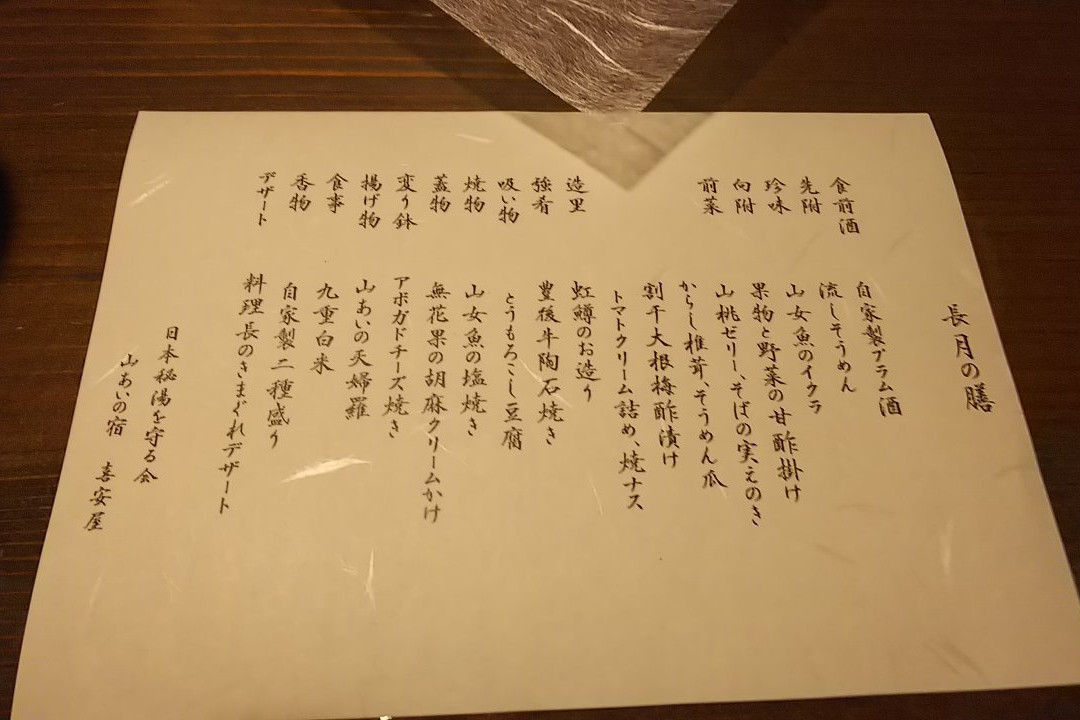 長月の膳
食前酒　自家製プラム酒
先附　流しそうめん
珍味　山女魚のイクラ
向附　果物と野菜の甘酢掛け
前菜　山桃ゼリー、そばの実えのき
からし椎茸、そうめん瓜
割干大根梅酢漬け
トマトクリーム詰め、焼ナス
造里　虹鱒のお造り
強肴　豊後牛陶石焼き
吸い物　とうもろこし豆腐
焼物　山女魚の塩焼き
蓋物　無花果の胡麻クリームかけ
変り鉢　アボガドチーズ焼き
揚げ物　山あいの天婦羅
食事　九重白米
香物　自家製二種盛り
デザート　料理長のきまぐれデザート
日本秘湯を守る会
山あいの宿　喜安屋